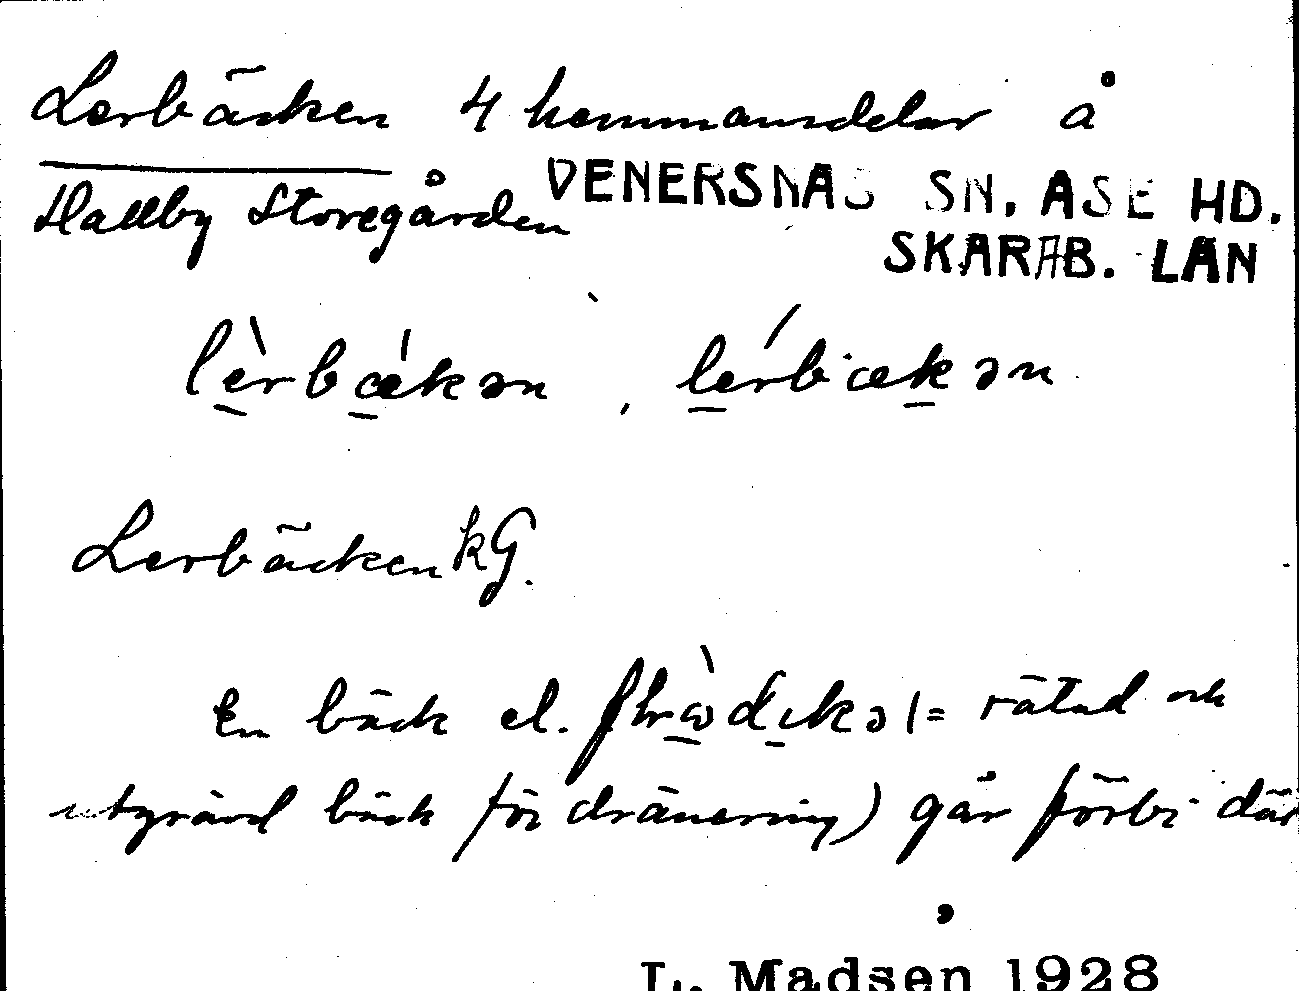 Lerbäcken 4 hemmansdelar å
Hallby Storegården VENERSNAS SN. ASE HD.
SKARAB. LAN
lèrbækən, lérbækən
Lerbäcken kG.
En bäck el. (= rätad och
utgrävd bäck för dränering) går förbi där
L. Madsen 1928